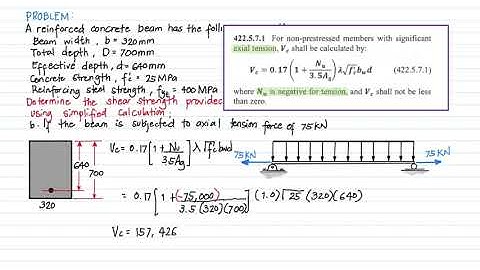 PROBLEM:
A reinforced concrete beam has the follo
Beam width, b = 320mm
Total depth, D = 700mm
Effective depth, d = 640mm
Concrete strength, f'c = 25 MPa
Reinforcing steel strength, = 400 MPa
Determine the shear strength provided
using simplified calculation;
b. If the beam is subjected to axial tension force of 75 KN
422.5.7.1 For non-prestressed members with significant
axial tension, Vc shall be calculated by:
Vc = 0.17 (1 + Nu / 3.5Ag) λ√f'c bwd (422.5.7.1)
where Nu is negative for tension, and Vc shall not be less
than zero.
Vc = 0.17 [1 + Nu / 3.5Ag] λ√f'c bwd
= 0.17 [1 + (-75,000) / 3.5(320)(700)] (1.0)√25 (320)(640)
Vc = 157,426
640
700
320
75KN
75KN